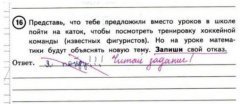 16 Представь, что тебе предложили вместо уроков в школе
пойти на каток, чтобы посмотреть тренировку хоккейной
команды (известных фигуристов). Но на уроке матема-
тики будут объяснять новую тему. Запиши свой отказ.
Ответ. Я пойду!!! Читай задание!